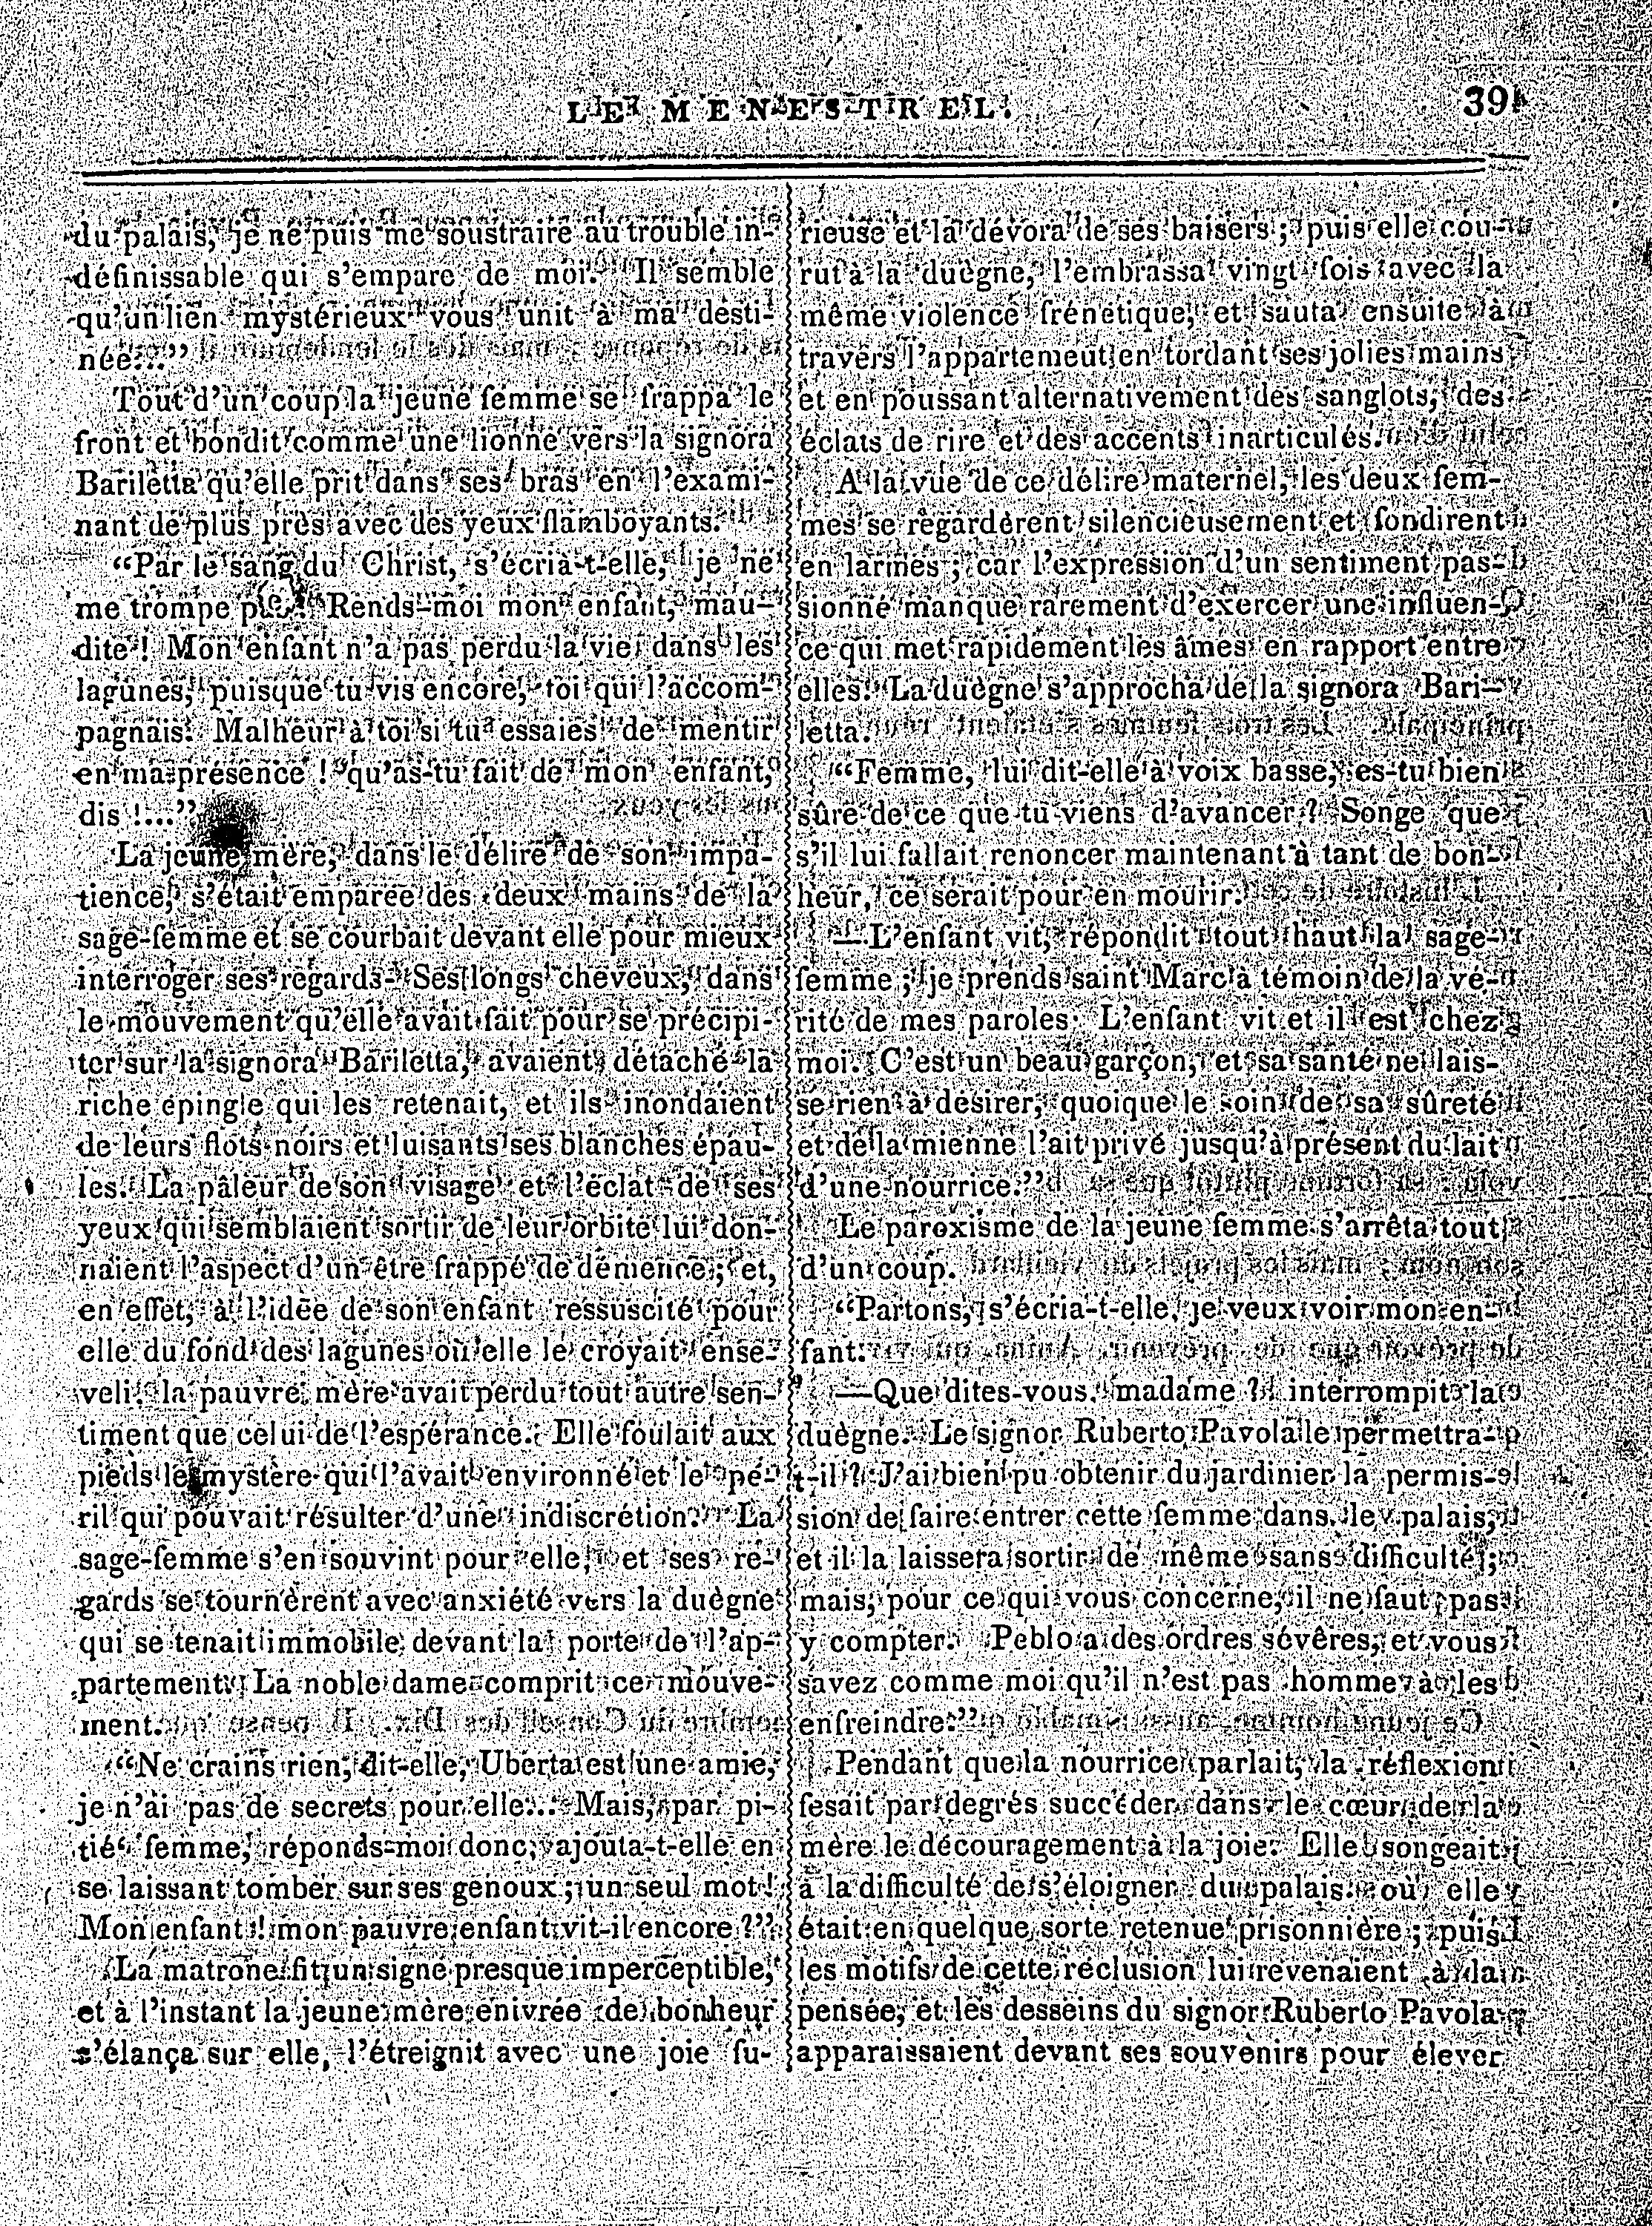 LE MENESTREL.
39
du palais, je ne puis me soustraire au trouble in-
définissable qui s'empare de moi. Il semble
qu'un lien mystérieux vous unit à ma desti-
née..."
Tout d'un coup la jeune femme se frappa le
front et bondit comme une lionne vers la signora
Bariletta qu'elle prit dans ses bras en l'exami-
nant de plus près avec des yeux flamboyants.
"Par le sang du Christ, s'écria-t-elle, je ne
me trompe Rends-moi mon enfant, mau-
dite ! Mon enfant n'a pas perdu la vie dans les
lagunes, puisque tu vis encore, toi qui l'accom-
pagnais. Malheur à toi si tu essaies de mentir
en ma présence ! qu'as-tu fait de mon enfant,
dis !..."
La jeune mère, dans le délire de son impa-
tience, s'était emparée des deux mains de la
sage-femme et se courbait devant elle pour mieux
interroger ses regards. Ses longs cheveux, dans
le mouvement qu'elle avait fait pour se précipi-
ter sur la signora Bariletta, avaient détaché la
riche épingle qui les retenait, et ils inondaient
de leurs flots noirs et luisants ses blanches épau-
les. La pâleur de son visage et l'éclat de ses
yeux qui semblaient sortir de leur orbite lui don-
naient l'aspect d'un être frappé de démence ; et,
en effet, à l'idée de son enfant ressuscité pour
elle du fond des lagunes où elle le croyait ense-
veli, la pauvre mère avait perdu tout autre sen-
timent que celui de l'espérance. Elle foulait aux
pieds le mystère qui l'avait environné et le pé-
ril qui pouvait résulter d'une indiscrétion. La
sage-femme s'en souvint pour elle, et ses re-
gards se tournèrent avec anxiété vers la duègne
qui se tenait immobile devant la porte de l'ap-
partement. La noble dame comprit ce mouve-
ment.
"Ne crains rien, dit-elle, Uberta est une amie,
je n'ai pas de secrets pour elle... Mais, par pi-
tié, femme, réponds-moi donc, ajouta-t-elle en
se laissant tomber sur ses genoux ; un seul mot !
Mon enfant ! mon pauvre enfant vit-il encore ?"
La matrone fit un signe presque imperceptible,
et à l'instant la jeune mère enivrée de bonheur
s'élança sur elle, l'étreignit avec une joie fu-
rieuse et la dévora de ses baisers ; puis elle cou-
rut à la duègne, l'embrassa vingt fois avec la
même violence frénétique, et sauta ensuite à
travers l'appartement en tordant ses jolies mains
et en poussant alternativement des sanglots, des
éclats de rire et des accents inarticulés.
A la vue de ce délire maternel, les deux fem-
mes se regardèrent silencieusement et fondirent
en larmes ; car l'expression d'un sentiment pas-
sionné manque rarement d'exercer une influen-
ce qui met rapidement les âmes en rapport entre
elles. La duègne s'approcha de la signora Bari-
letta.
"Femme, lui dit-elle à voix basse, es-tu bien
sûre de ce que tu viens d'avancer ? Songe que
s'il lui fallait renoncer maintenant à tant de bon-
heur, ce serait pour en mourir.
—L'enfant vit, répondit tout haut la sage-
femme ; je prends saint Marc à témoin de la vé-
rité de mes paroles. L'enfant vit et il est chez
moi. C'est un beau garçon, et sa santé ne lais-
se rien à désirer, quoique le soin de sa sûreté
et de la mienne l'ait privé jusqu'à présent du lait
d'une nourrice."
Le paroxisme de la jeune femme s'arrêta tout
d'un coup.
"Partons, s'écria-t-elle, je veux voir mon en-
fant.
—Que dites-vous, madame ? interrompit la
duègne. Le signor Ruberto Pavola le permettra-
t-il ? J'ai bien pu obtenir du jardinier la permis-
sion de faire entrer cette femme dans le palais,
et il la laissera sortir de même sans difficulté ;
mais, pour ce qui vous concerne, il ne faut pas
y compter. Peblo a des ordres sévères, et vous
savez comme moi qu'il n'est pas homme à les
enfreindre."
Pendant que la nourrice parlait, la réflexion
fesait par degrés succéder dans le cœur de la
mère le découragement à la joie. Elle songeait
à la difficulté de s'éloigner du palais où elle
était en quelque sorte retenue prisonnière ; puis
les motifs de cette réclusion lui revenaient à la
pensée, et les desseins du signor Ruberto Pavola
apparaissaient devant ses souvenirs pour élever